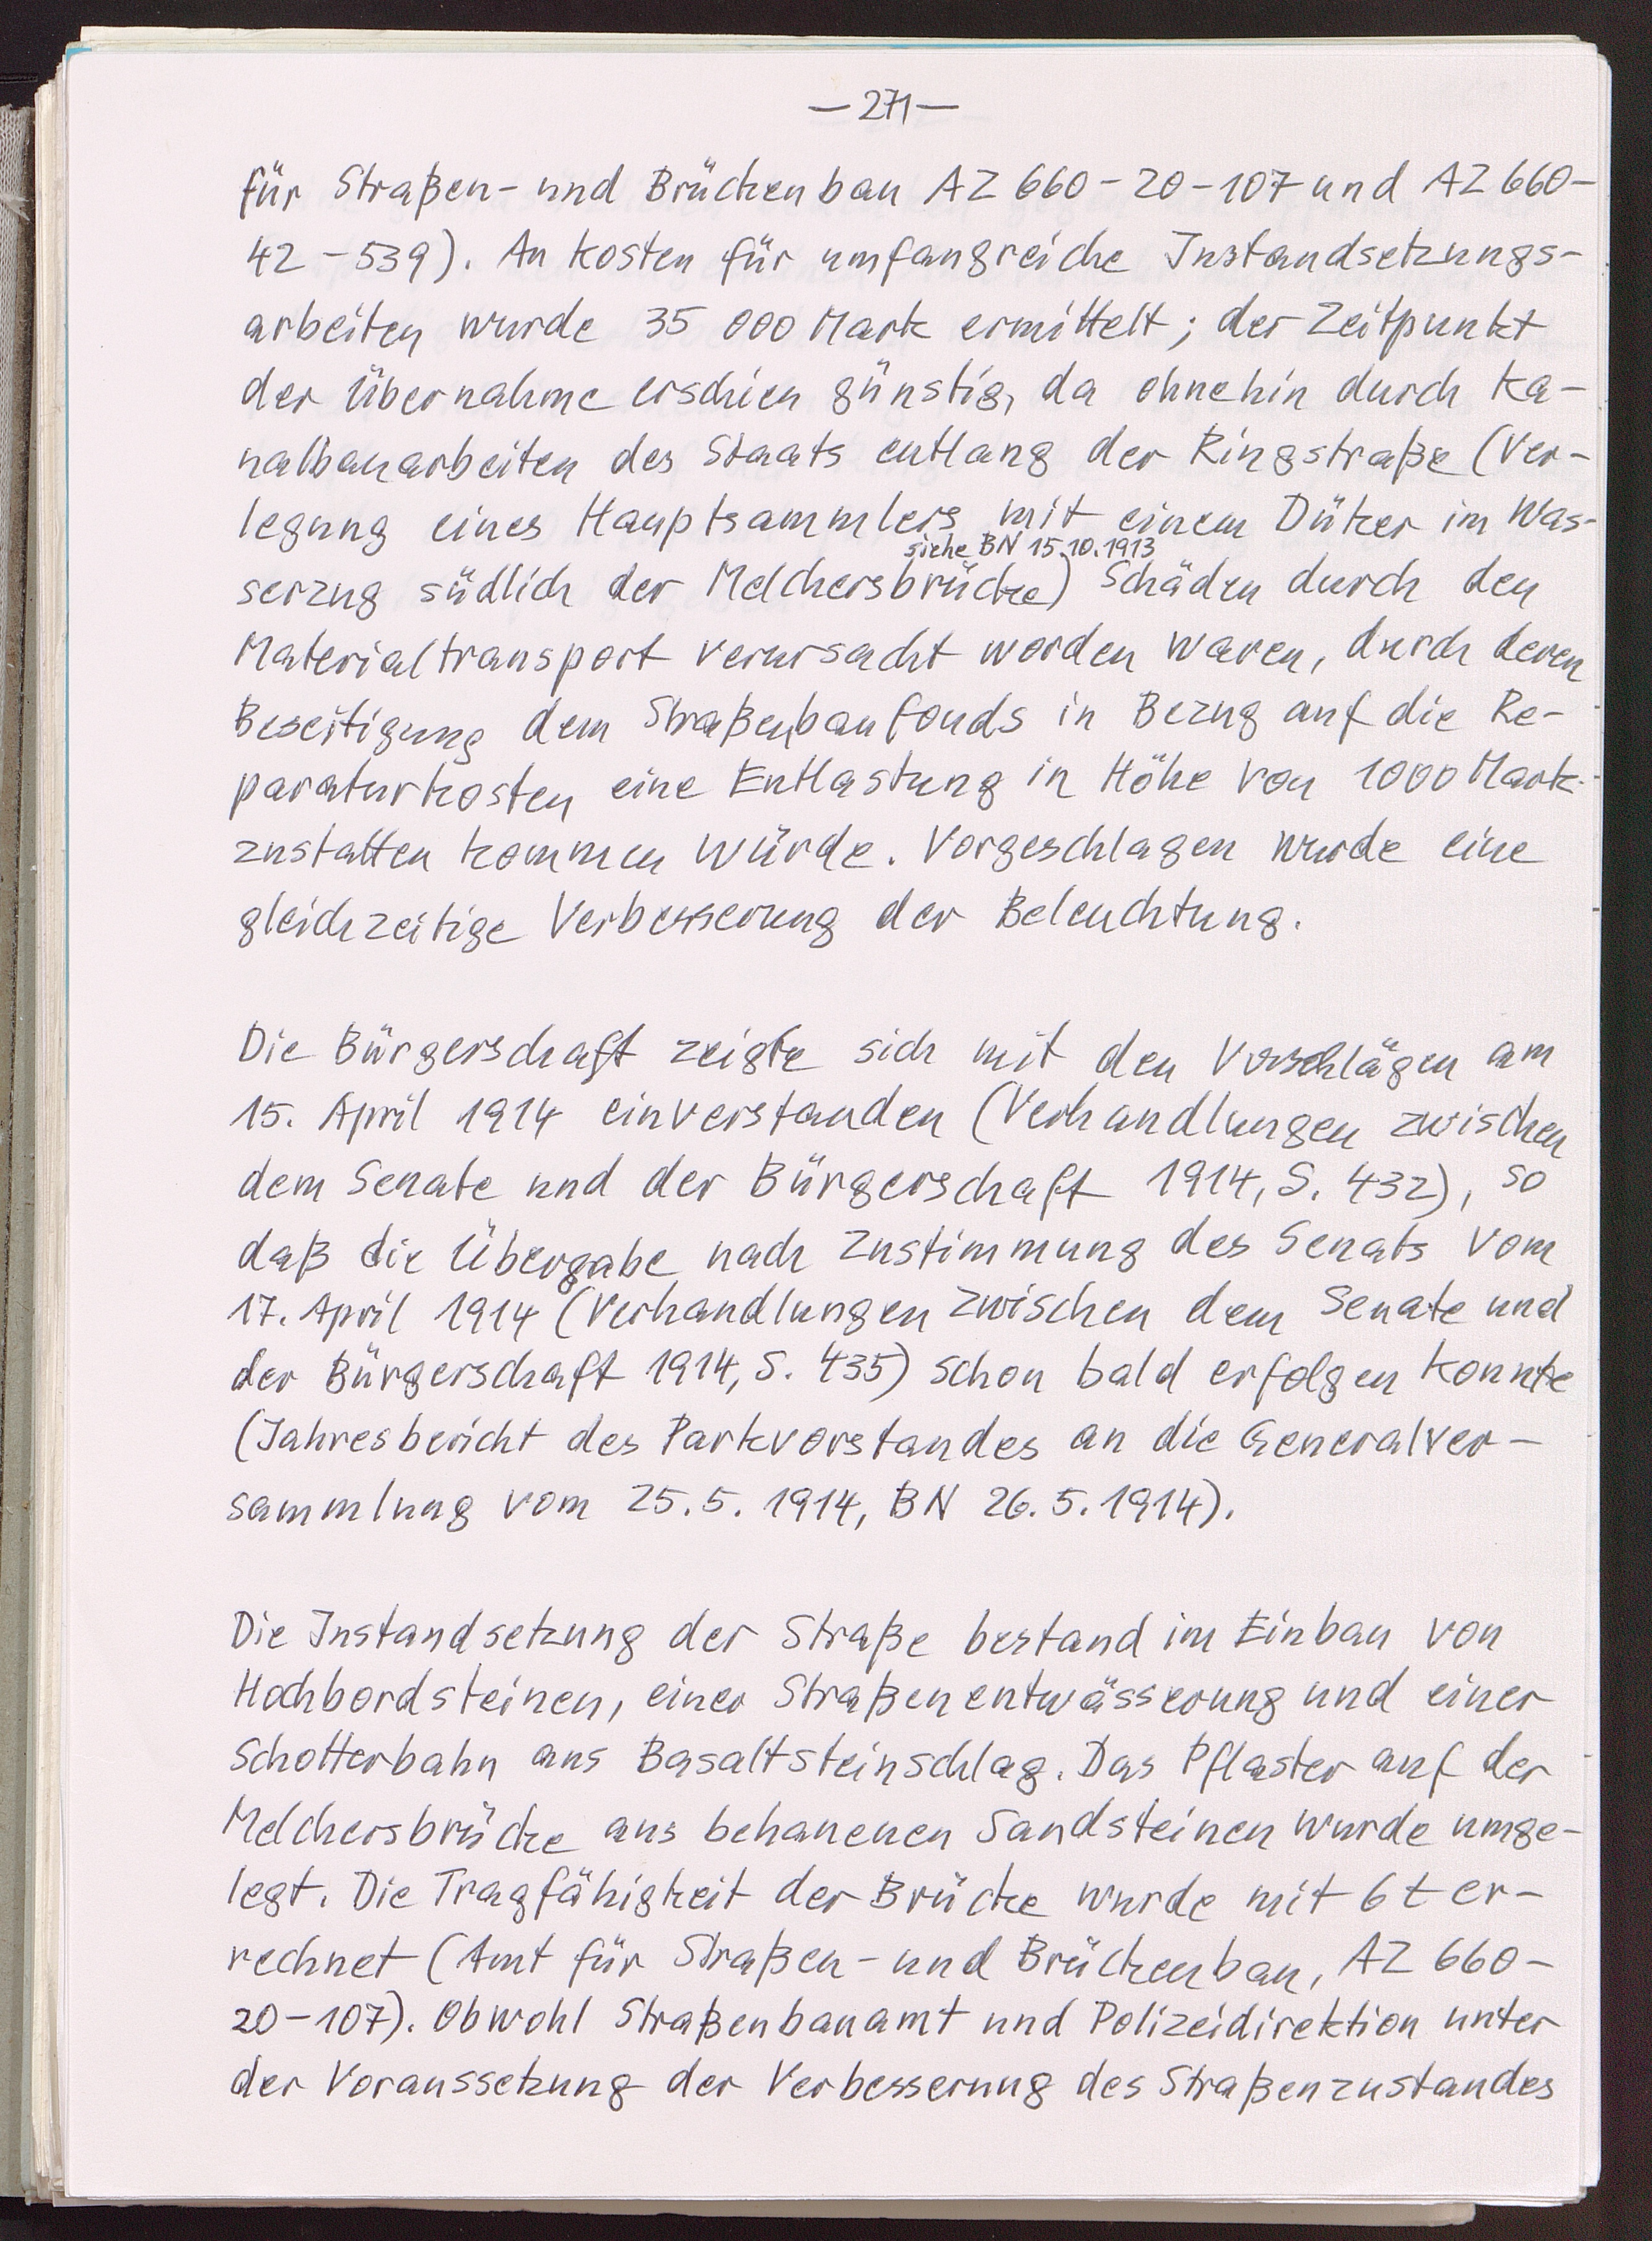 — 271 —
für Straßen- und Brückenbau AZ 660-20-107 und AZ 660-
42-539). An Kosten für umfangreiche Instandsetzungs-
arbeiten wurde 35 000 Mark ermittelt; der Zeitpunkt
der Übernahme erschien günstig, da ohnehin durch Ka-
nalbauarbeiten des Staats entlang der Ringstraße (Ver-
legung eines Hauptsammlers mit einem Düker im Was-
siehe BN 15.10.1913
serzug südlich der Melchersbrücke) Schäden durch den
Materialtransport verursacht worden waren, durch deren
Beseitigung dem Straßenbaufonds in Bezug auf die Re-
paraturkosten eine Entlastung in Höhe von 1000 Mark
zustatten kommen würde. Vorgeschlagen wurde eine
gleichzeitige Verbesserung der Beleuchtung.
Die Bürgerschaft zeigte sich mit den Vorschlägen am
15. April 1914 einverstanden (Verhandlungen zwischen
dem Senate und der Bürgerschaft 1914, S. 432), so
daß die Übergabe nach Zustimmung des Senats vom
17. April 1914 (Verhandlungen zwischen dem Senate und
der Bürgerschaft 1914, S. 435) schon bald erfolgen konnte
(Jahresbericht des Parkvorstandes an die Generalver-
sammlung vom 25.5.1914, BN 26.5.1914).
Die Instandsetzung der Straße bestand im Einbau von
Hochbordsteinen, einer Straßenentwässerung und einer
Schotterbahn aus Basaltsteinschlag. Das Pflaster auf der
Melchersbrücke aus behauenen Sandsteinen wurde umge-
legt. Die Tragfähigkeit der Brücke wurde mit 6 t er-
rechnet (Amt für Straßen- und Brückenbau, AZ 660-
20-107). Obwohl Straßenbauamt und Polizeidirektion unter
der Voraussetzung der Verbesserung des Straßenzustandes